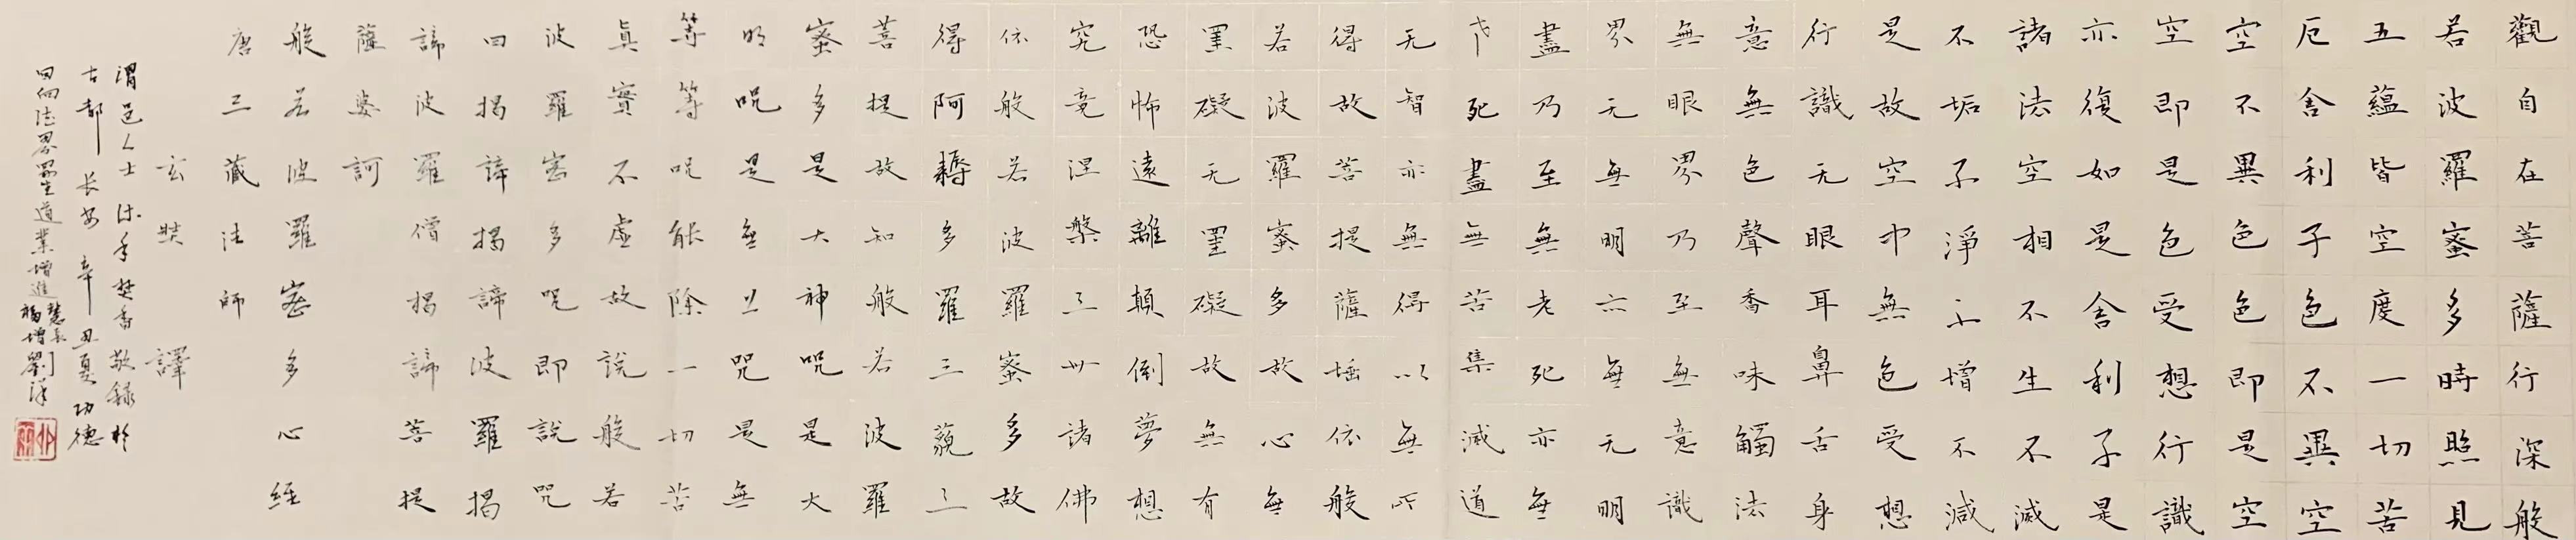 觀自在菩薩行深般
若波羅蜜多時照見
五蘊皆空度一切苦
厄舍利子色不異空
空不異色色即是空
空即是色受想行識
亦復如是舍利子是
諸法空相不生不滅
不垢不淨不增不減
是故空中無色受想
行識无眼耳鼻舌身
意無色聲香味觸法
無眼界乃至無意識
界无無明亦無无明
盡乃至無老死亦無
老死盡無苦集滅道
无智亦無得以無所
得故菩提薩埵依般
若波羅蜜多故心無
罣礙无罣礙故無有
恐怖遠離顛倒夢想
究竟涅槃三世諸佛
依般若波羅蜜多故
得阿耨多羅三藐三
菩提故知般若波羅
蜜多是大神咒是大
明咒是無上咒是無
等等咒能除一切苦
真實不虛故說般若
波羅密多咒即說咒
曰揭諦揭諦波羅揭
諦波羅僧揭諦菩提
薩婆訶
般若波羅密多心經
唐三藏法師
玄奘譯
渭邑人士沐手焚香敬録於
古都长安辛丑夏功德
回向法界眾生道業增進慧長福增劉洋